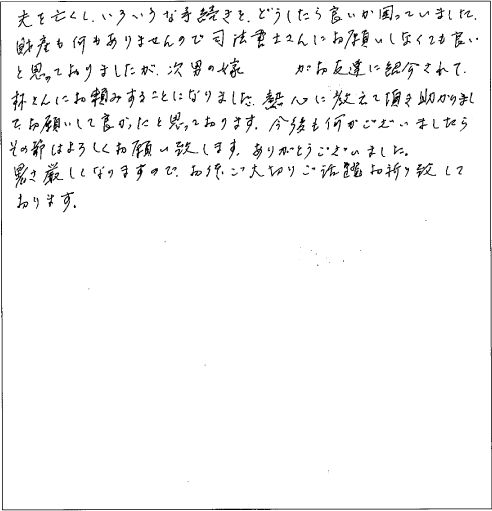 夫を亡くし、いろいろな手続きを、どうしたら良いか困っていました。
財産も何もありませんので司法書士さんにお願いしなくても良い
と思っておりましたが、次男の嫁　　　がお友達に紹介されて、
林さんにお頼みすることになりました。熱心に教えて頂き助かりまし
た。お願いして良かったと思っております。今後も何かございましたら
その節はよろしくお願い致します。ありがとうございました。
暑さ厳しくなりますので、お体、ご大切りご活躍お祈り致して
おります。